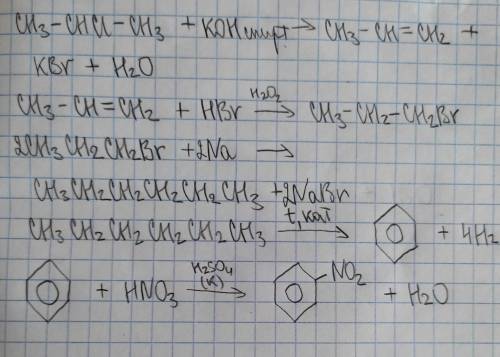 CH₃–CHCl–CH₃ + KOH спирт → CH₃–CH=CH₂ +
KBr + H₂O
CH₃–CH=CH₂ + HBr –H₂O₂→ CH₃–CH₂–CH₂Br
2CH₃CH₂CH₂Br + 2Na →
CH₃CH₂CH₂CH₂CH₂CH₃ + 2NaBr
CH₃CH₂CH₂CH₂CH₂CH₃ –t, кат→ + 4H₂
+ HNO₃ –H₂SO₄ (к)→ –NO₂ + H₂O